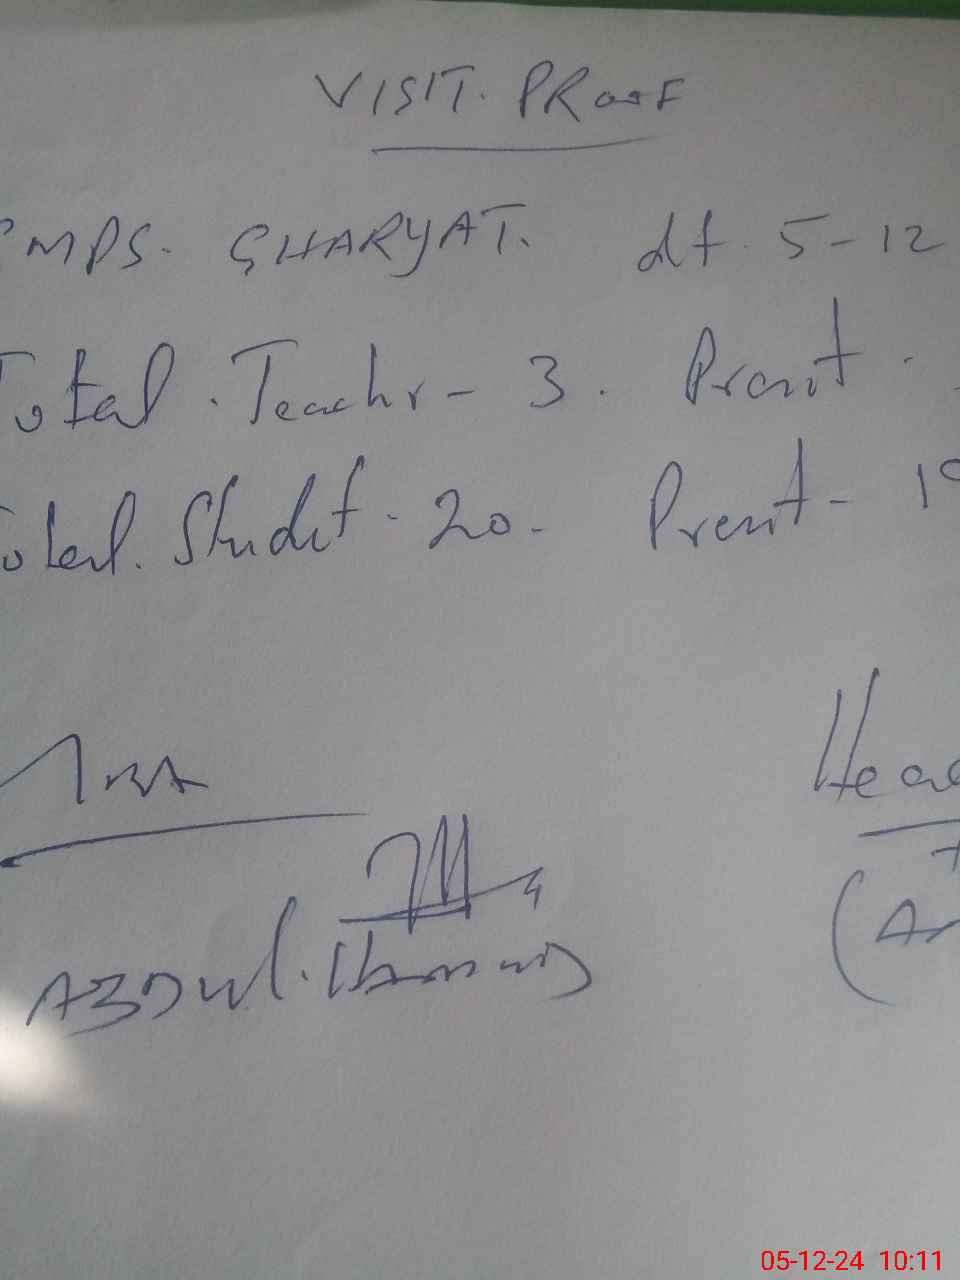 VISIT. PRooF
GMPS. GHARYAT. dt. 5-12
Total. Teachr - 3. Prent.
Total. Studet - 20. Prent - 19
Head
ABDUl. Hamid
(Ar
05-12-24 10:11